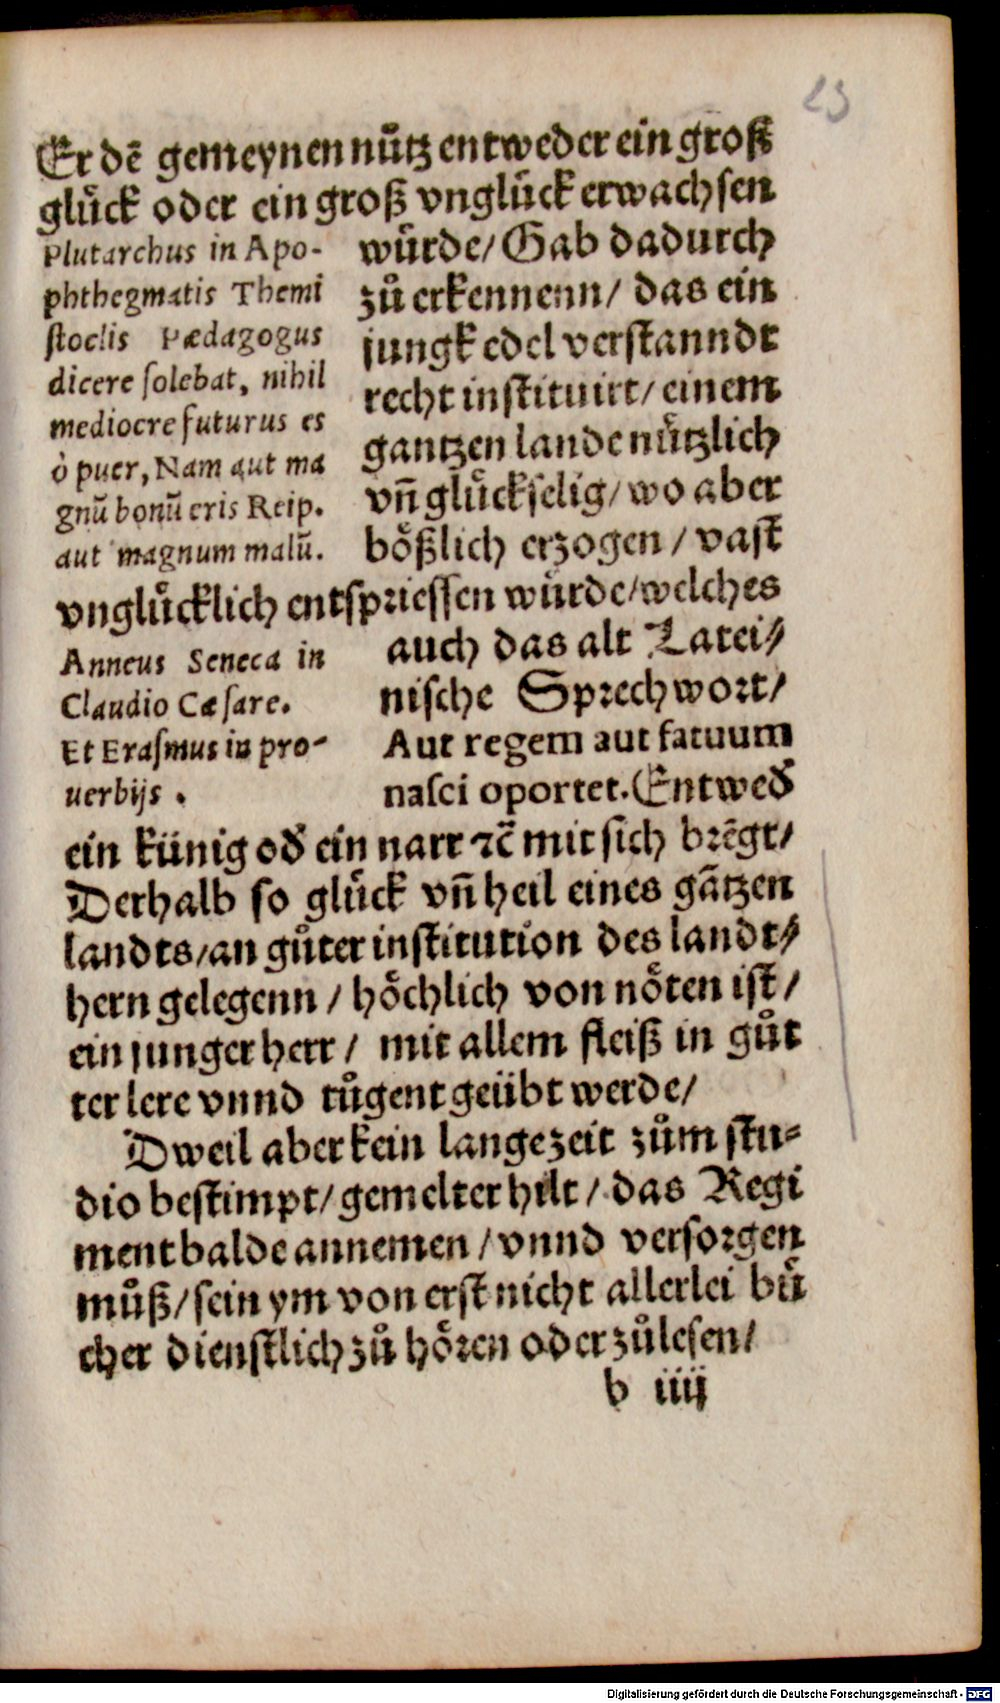 23
Er dē gemeynen nůtz entweder ein groß
glück oder ein groß vnglück erwachsen
Plutarchus in Apo-
phthegmatis Themi
stoclis Pædagogus
dicere solebat, nihil
mediocre futurus es
ò puer, Nam aut ma
gnū bonū eris Reip.
aut magnum malū.
würde/ Gab dadurch
zů erkennenn/ das ein
jungk edel verstanndt
recht instituirt/ einem
gantzen lande nützlich
vñ glückselig/ wo aber
bößlich erzogen / vast
vnglücklich entspriessen würde/welches
Anneus Seneca in
Claudio Cæsare.
Et Erasmus in pro-
uerbijs .
auch das alt Latei⸗
nische Sprechwort/
Aut regem aut fatuum
nasci oportet. Entwed̄
ein künig od̄ ein narr ⁊c̄ mit sich brēgt/
Derhalb so glück vñ heil eines gātzen
landts/an gůter institution des landt⸗
hern gelegenn / höchlich von nöten ist /
ein junger herr / mit allem fleiß in gůt
ter lere vnnd tůgent geübt werde/
Dweil aber kein lange zeit zům stu⸗
dio bestimpt/ gemelter hilt / das Regi
ment balde annemen / vnnd versorgen
můß/ sein ym von erst nicht allerlei bü
cher dienstlich zů hören oder zů lesen/
b iiij
Digitalisierung gefördert durch die Deutsche Forschungsgemeinschaft - DFG